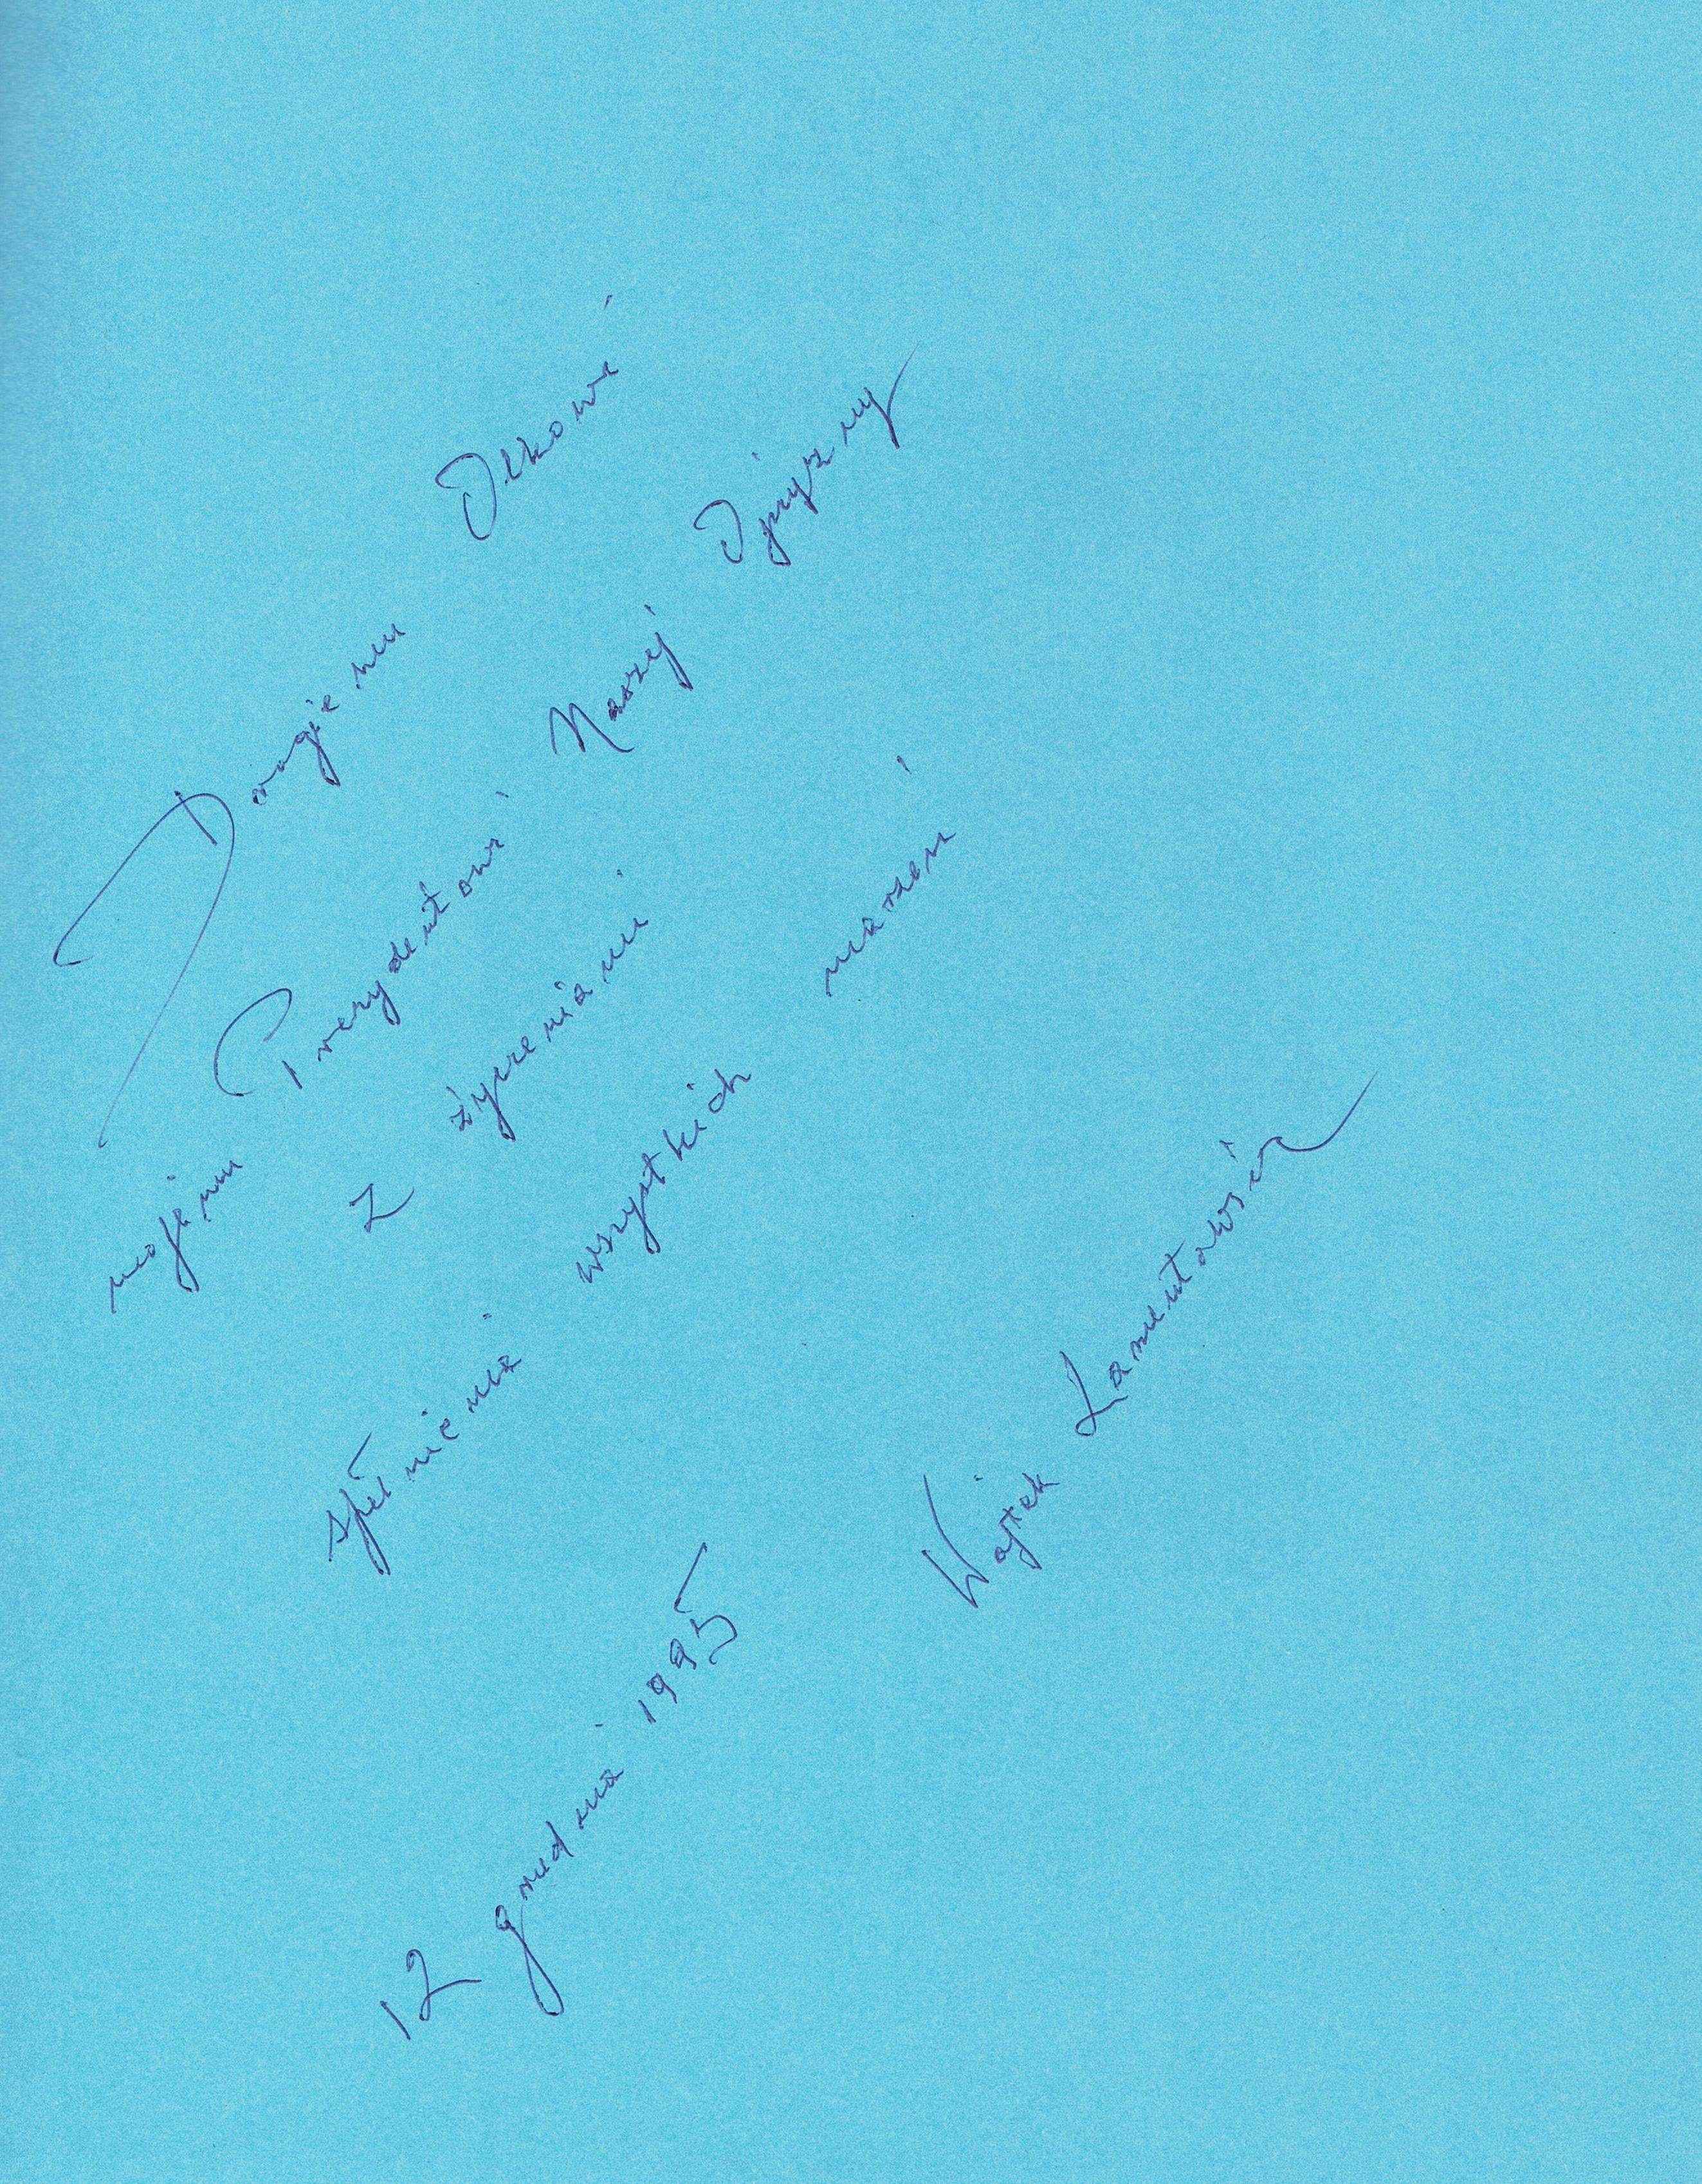 Drogiemu Olkowi
mojemu Prezydentowi Naszej Ojczyzny
z życzeniami
spełnienia wszystkich marzeń
Wojtek Lamentowicz
12 grudnia 1995